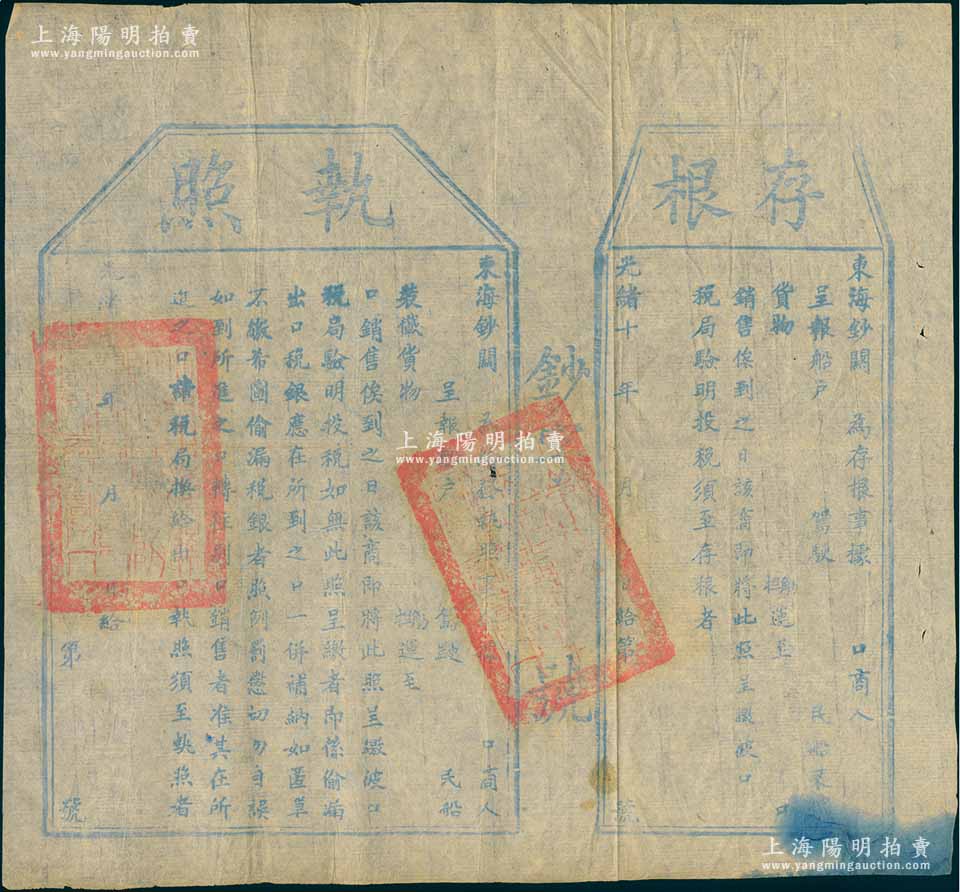 上海陽明拍賣
www.yangmingauction.com
上海陽明拍賣
www.yangmingauction.com
存根
東海鈔關 為存根事據 口商人
呈報船戶 駕馭 民船裝
貨物 運至 口
銷售俟到之日該商即將此照呈繳彼口
稅局驗明投稅須至存根者
光緒十 年 月 日給第 號
鈔 號
執照
東海鈔關 為發執照事 口商人
呈報 戶 駕駛 民船
裝儎貨物 運至
口銷售俟到之日該商即將此照呈繳彼口
稅局驗明投稅如無此照呈繳者即係偷漏
出口稅銀應在所到之口一併補納如匿單
不繳希圖偷漏稅銀者照例罰懲切勿自誤
如到所進之口轉往別口銷售者准其在所
進之口請稅局換給出口執照須至執照者
光緒 年 月 日給
第 號
上海陽明拍賣
www.yangmingauction.com
上海陽明拍賣
www.yangmingauction.com